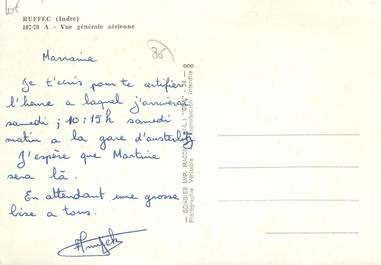 RUFFEC (Indre)
107-78 A - Vue générale aérienne
Marraine
Je t'ecris pour te certifier
l'heure a laquel j'arriverai
samedi ; 10:15h samedi
matin a la gare d'austerlitz
J'espère que Martine
sera là.
En attendant une grosse
bise a tous.
COMBIER IMP. MACON
Photographie Véritable - Reproduction Interdite